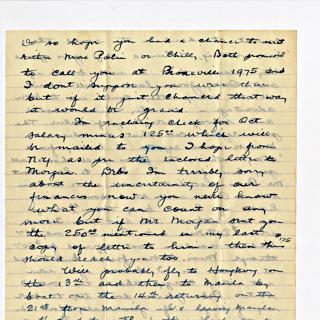 Do so hope you had a chance to meet
either Miss Palin or Chilly. Both promised
to call you at Bronxville 1975 and
I dont suppose you were there
but if it just chanced that way
it would be grand.
Im enclosing check for Oct
salary minus 125.00 which will
be mailed to you I hope from
N.Y. as per the enclosed letter to
Morgan. Debs Im terribly sorry
about the uncertainty of our
finances now & you never know
what you can count on any
more but if Mr. Morgan sent you
the 250.00 mentioned in my last &
copy of letter to him then this 125
should reach you too.
Will probably fly to Hongkong on
the 13th and then to Manila by
boat on the 14th returning on the
21st from Manila